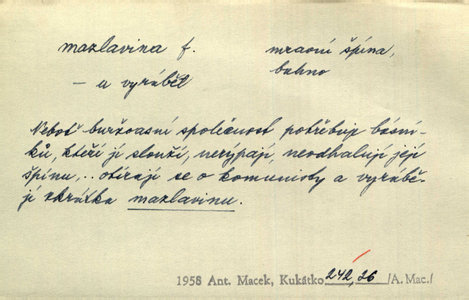 mazlavina f. mravní špína,
bahno
– u vyrábět
Neboť buržoasní společnost potřebuje básní-
ků, kteří jí slouží, nerýpají, neodhalují její
špínu,.. otírají se o komunisty a vyrábě-
jí zkrátka mazlavinu.
1958 Ant. Macek, Kukátko 242,26 /A. Mac./